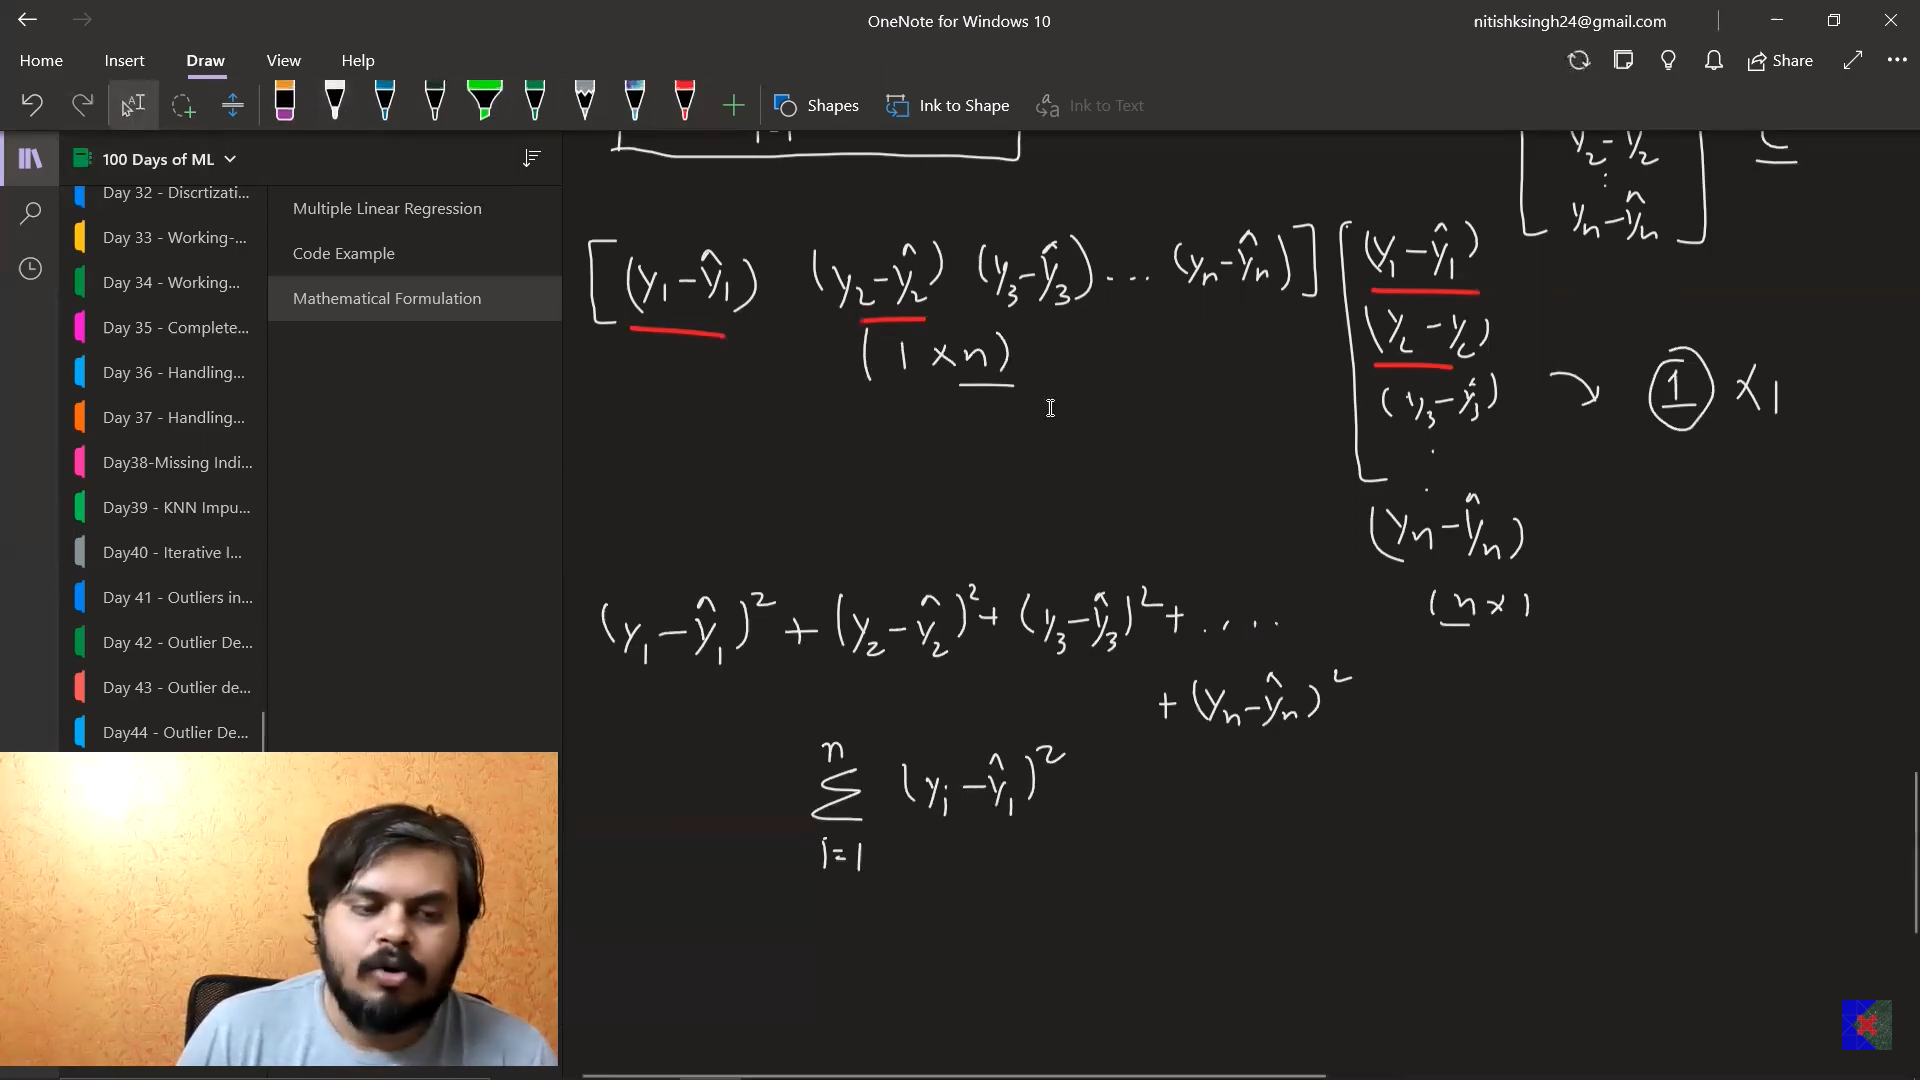 OneNote for Windows 10
nitishksingh24@gmail.com
Home Insert Draw View Help
Share
Shapes Ink to Shape Ink to Text
100 Days of ML
Day 32 - Discrtizati...
Day 33 - Working-...
Day 34 - Working...
Day 35 - Complete...
Day 36 - Handling...
Day 37 - Handling...
Day38-Missing Indi...
Day39 - KNN Impu...
Day40 - Iterative I...
Day 41 - Outliers in...
Day 42 - Outlier De...
Day 43 - Outlier de...
Day44 - Outlier De...
Multiple Linear Regression
Code Example
Mathematical Formulation
y₂ - ŷ₂
⋮
yₙ - ŷₙ
[(y₁ - ŷ₁) (y₂ - ŷ₂) (y₃ - ŷ₃) ... (yₙ - ŷₙ)]
(1 × n)
(y₁ - ŷ₁)
(y₂ - y₂)
(y₃ - ŷ₃)
.
.
(yₙ - ŷₙ)
(n × 1)
1 × 1
(y₁ - ŷ₁)² + (y₂ - ŷ₂)² + (y₃ - ŷ₃)² + ....
+ (yₙ - ŷₙ)²
n
Σ (yᵢ - ŷ₁)²
i=1